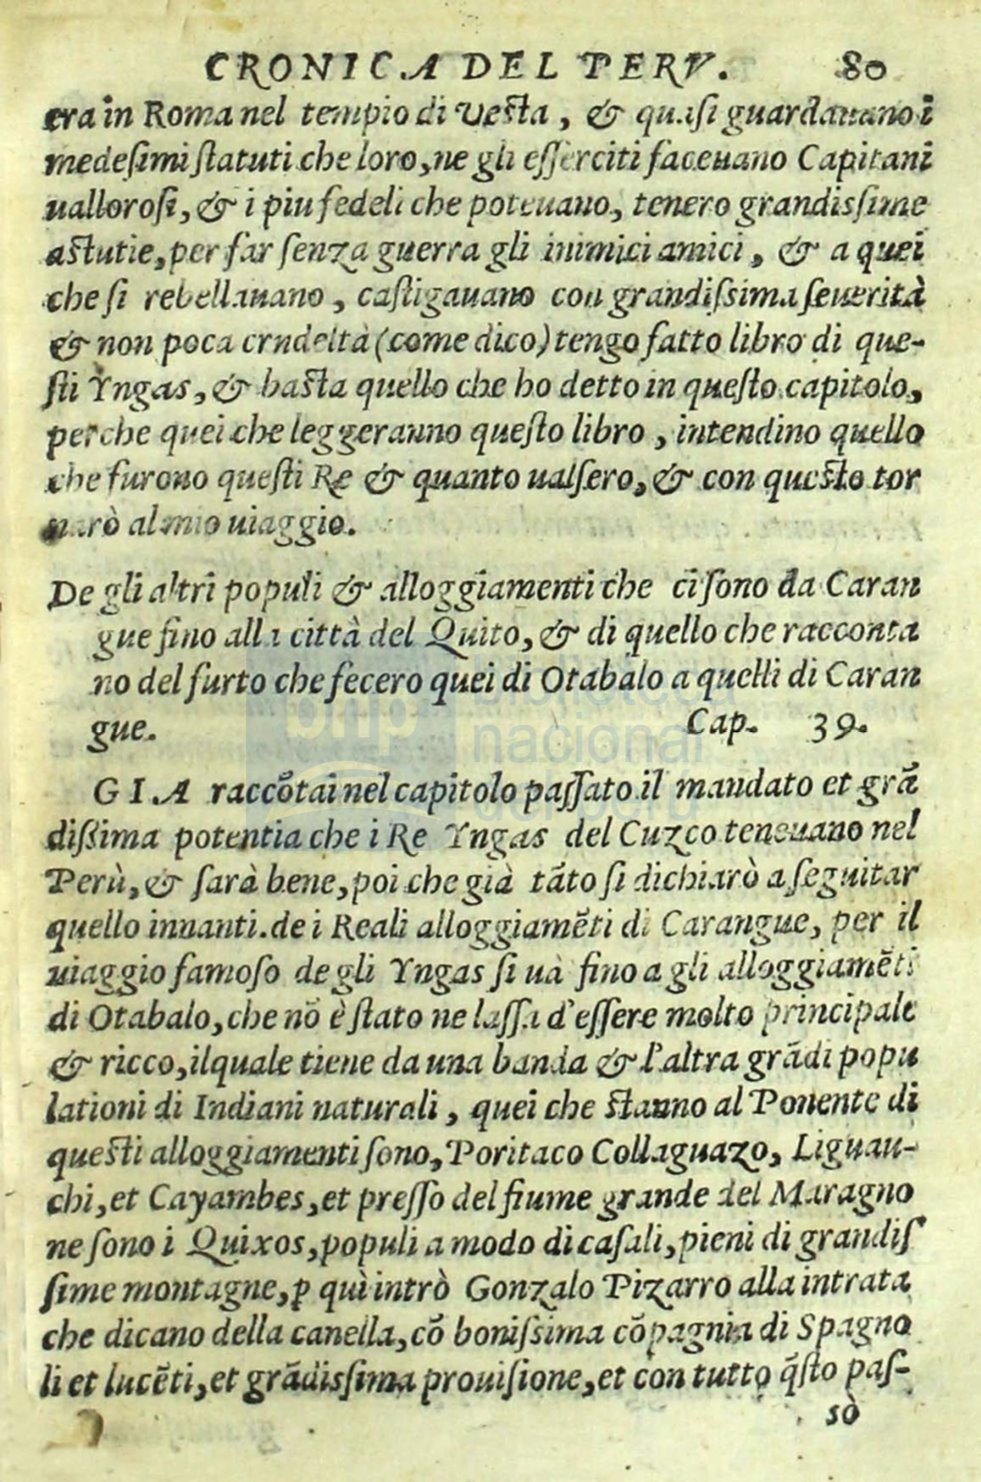 CRONICA DEL PERV. 80
era in Roma nel tempio di Vesta, & quasi guardauano i
medesimi statuti che loro, ne gli esserciti faceuano Capitani
uallorosi, & i piu fedeli che poteuano, tenero grandissime
astutie, per far senza guerra gli inimici amici, & a quei
che si rebellauano, castigauano con grandissima seuerità
& non poca crudeltà (come dico) tengo fatto libro di que-
sti Yngas, & basta quello che ho detto in questo capitolo,
perche quei che leggeranno questo libro, intendino quello
che furono questi Re & quanto ualsero, & con questo tor
narò al mio uiaggio.
De gli altri populi & alloggiamenti che ci sono da Caran
gue fino alla città del Quito, & di quello che racconta
no del furto che fecero quei di Otabalo a quelli di Caran
gue. Cap. 39.
GIA raccõtai nel capitolo passato il mandato et grã
dissima potentia che i Re Yngas del Cuzco teneuano nel
Perù, & sarà bene, poi che già tãto si dichiarò a seguitar
quello innanti. de i Reali alloggiamẽti di Carangue, per il
uiaggio famoso de gli Yngas si uà fino a gli alloggiamẽti
di Otabalo, che nõ è stato ne lassa d'essere molto principale
& ricco, ilquale tiene da una banda & l'altra grãdi popu
lationi di Indiani naturali, quei che stanno al Ponente di
questi alloggiamenti sono, Poritaco Collaguazo, Liguan-
chi, et Cayambes, et presso del fiume grande del Maragno
ne sono i Quixos, populi a modo di casali, pieni di grandis
sime montagne, p quì intrò Gonzalo Pizarro alla intrata
che dicano della canella, cõ bonissima cõpagnia di Spagno
li et lucẽti, et grãdissima prouisione, et con tutto q̃sto pas-
sò
bnp biblioteca
nacional
del Perú